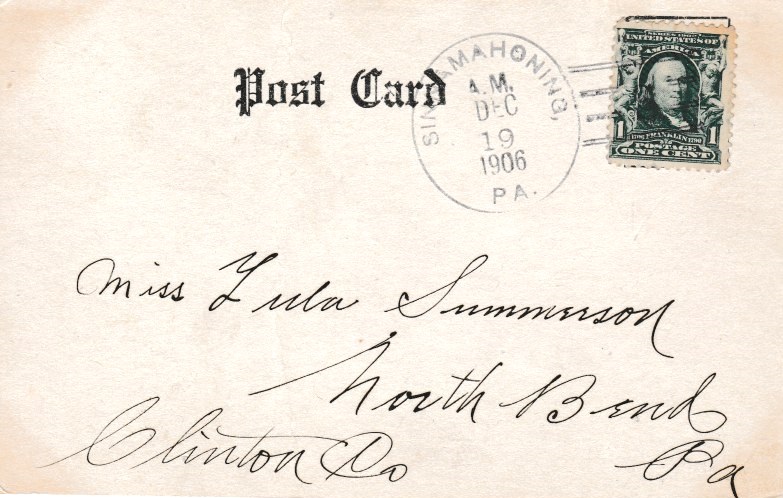 Post Card
SINNAMAHONING,
A.M.
DEC
19
1906
PA.
SERIES 1902
UNITED STATES OF
AMERICA
1 FRANKLIN 1
POSTAGE
ONE CENT
Miss Lula Summerson
North Bend
Clinton Co Pa